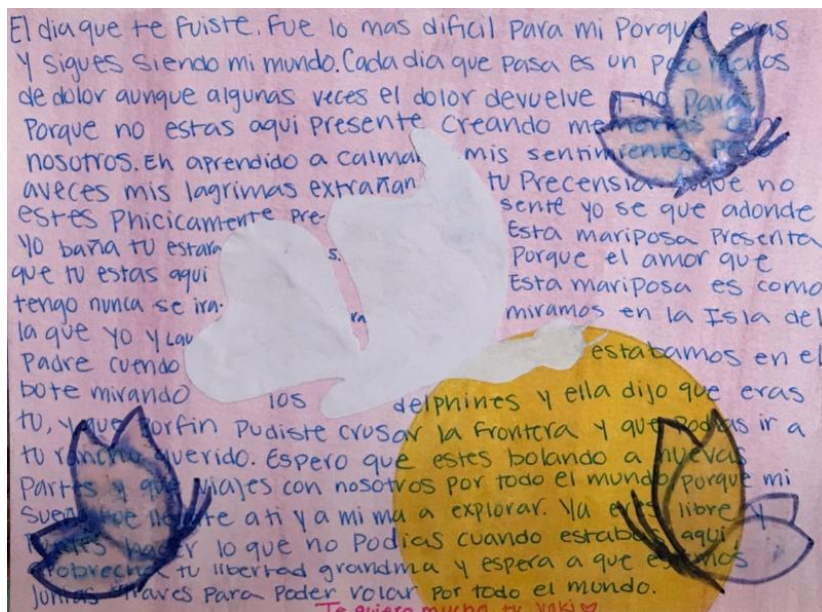 El dia que te fuiste. Fue lo mas dificil Para mi Porque eras
Y sigues siendo mi mundo. Cada dia que pasa es un poco menos
de dolor aunque algunas veces el dolor devuelve y no para
Porque no estas aqui Presente creando memorias con
nosotros. Eh aprendido a calmar mis sentimientos pero
aveces mis lagrimas extrañan tu Precensia. que no
estes Phicicamente Pre- sente yo se que adonde
Yo baña tu estara s. Esta mariposa Presenta
que tu estas aqui Porque el amor que
tengo nunca se ira. ra Esta mariposa es como
la que yo y Lau miramos en la Isla del
Padre cuendo estabamos en el
bote mirando los delphines y ella dijo que eras
tu, y que Porfin Pudiste crusar la frontera y que Podias ir a
tu rancho querido. Espero que estes bolando a nuevas
Partes y que viajes con nosotros por todo el mundo porque mi
sueño fue llevarte a ti y a mi ma a explorar. Ya eres libre y
Puedes hacer lo que no Podias cuando estabas aqui,
aprobrecha tu libertad grandma y espera a que estemos
juntas para Poder volar Por todo el mundo.
Te quiero mucho tu Yaki